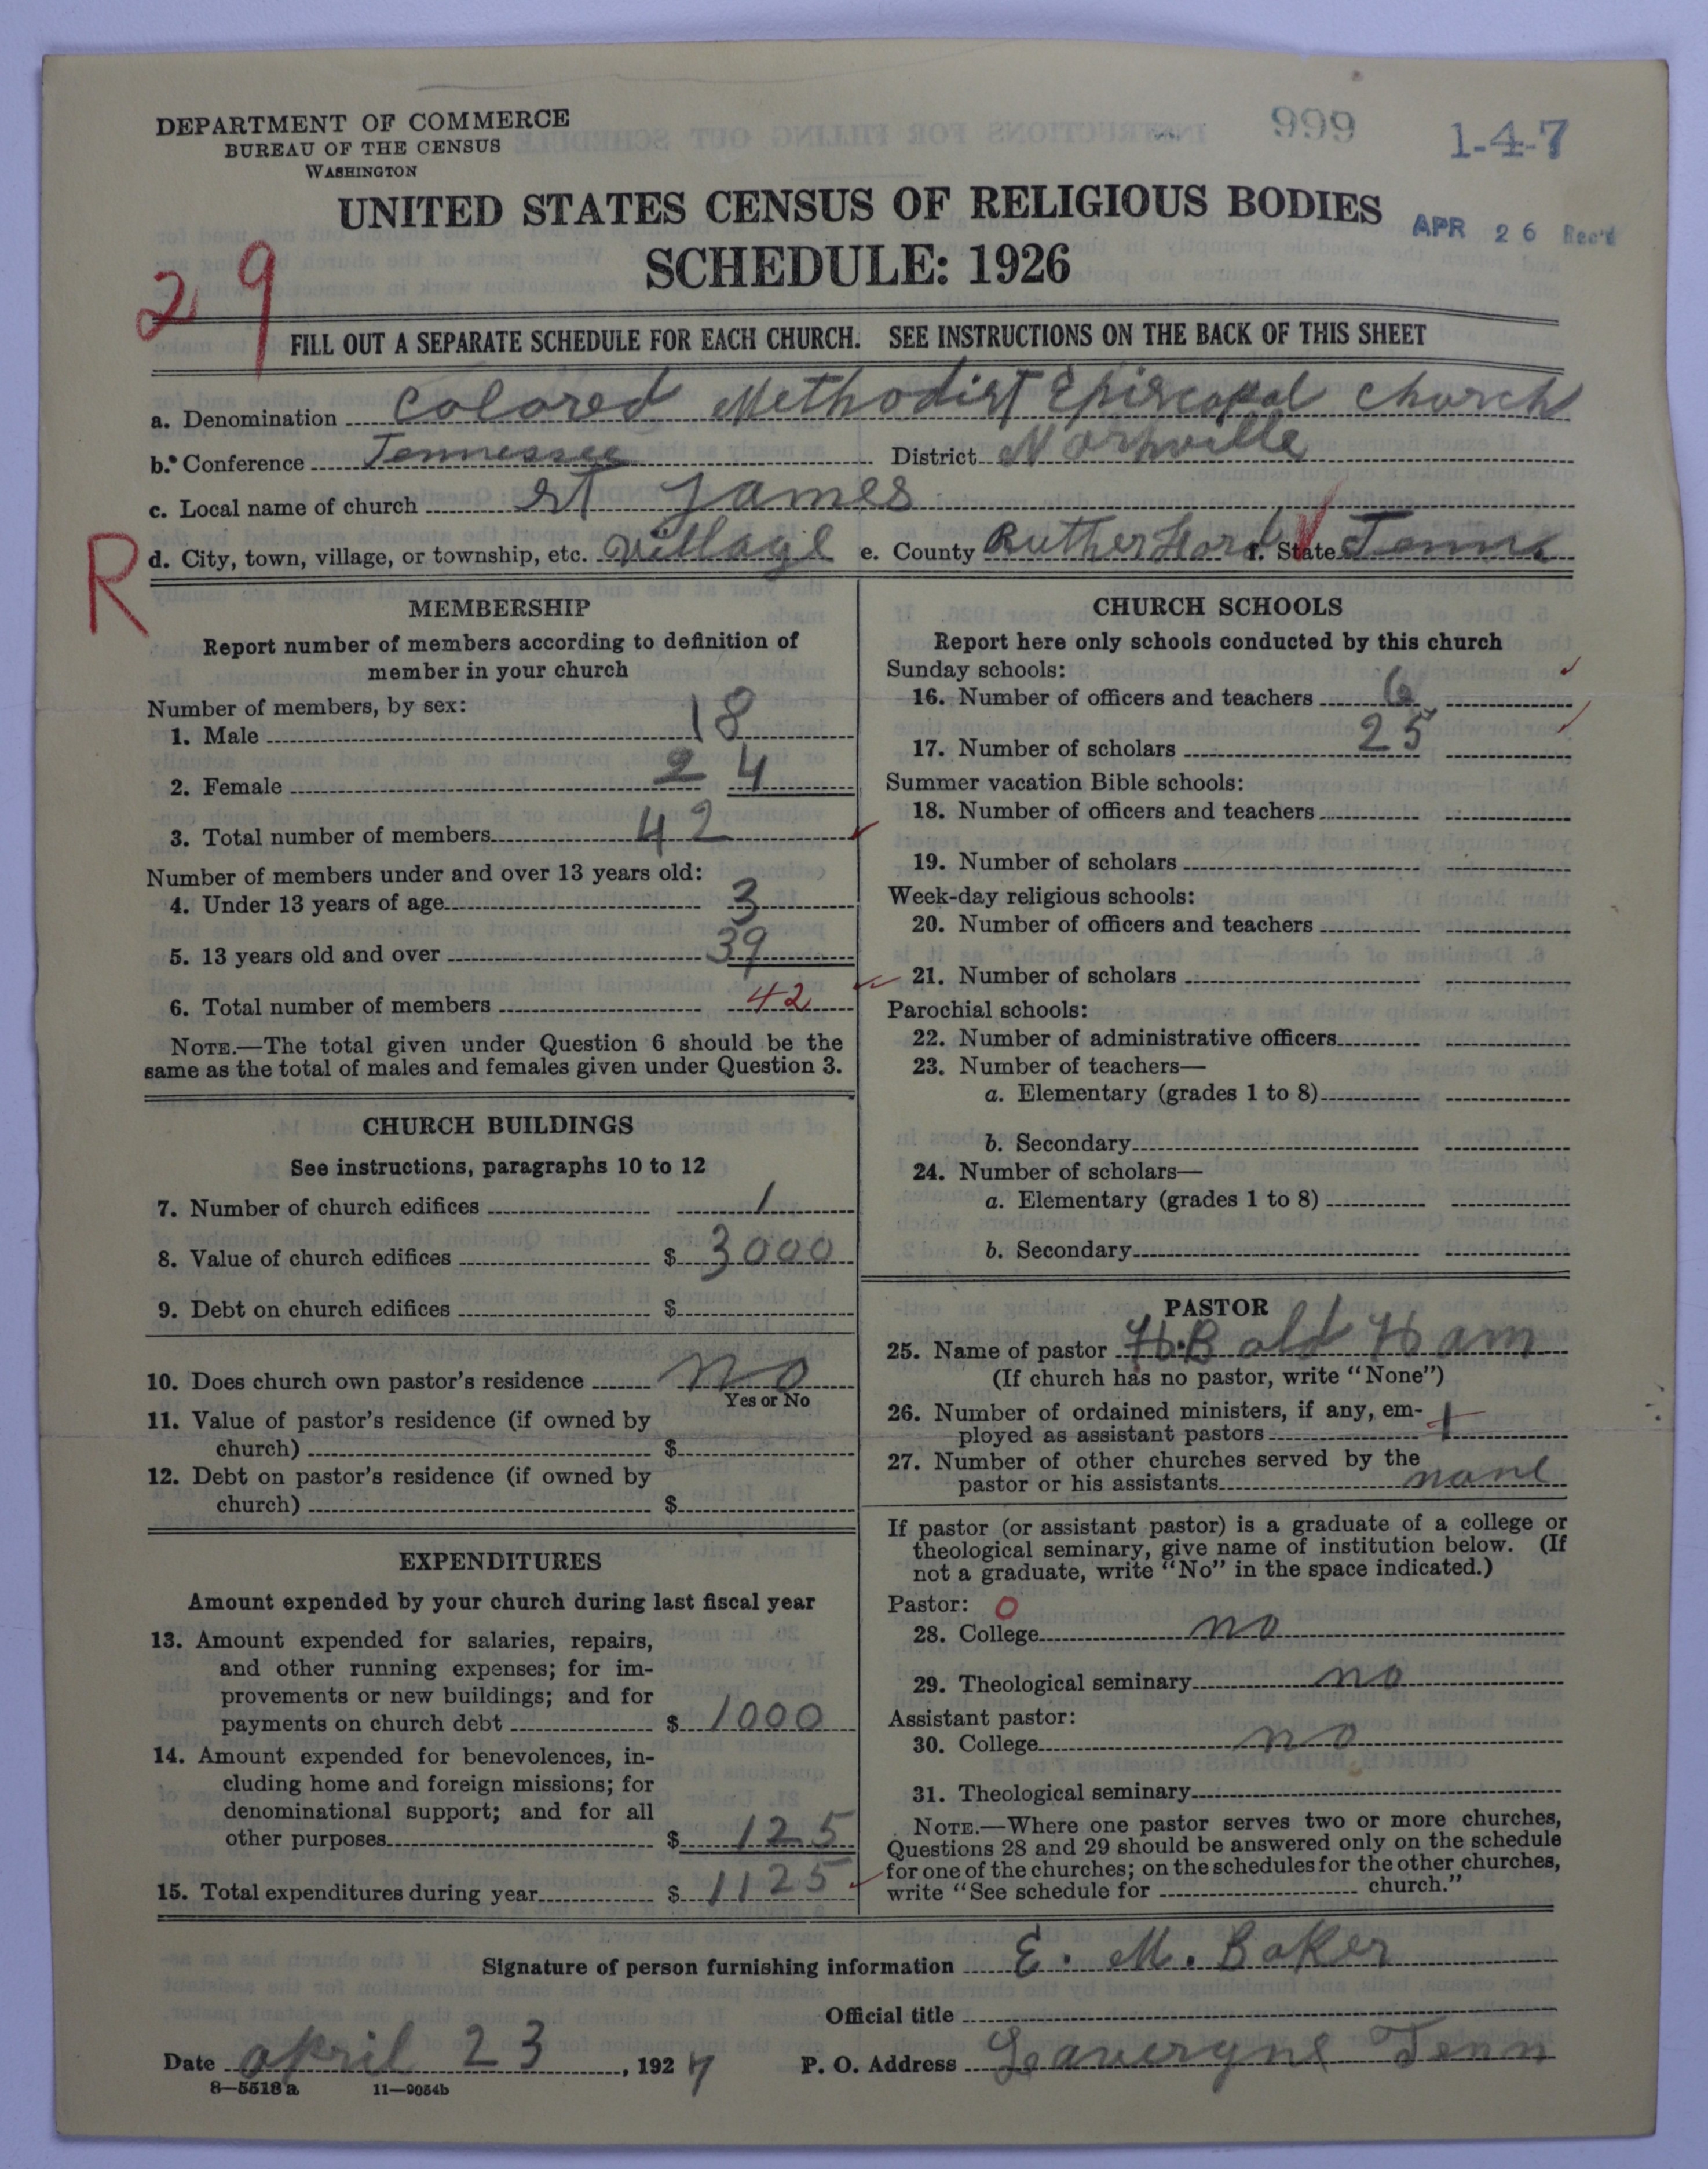 DEPARTMENT OF COMMERCE
BUREAU OF THE CENSUS
WASHINGTON
999
1-4-7
UNITED STATES CENSUS OF RELIGIOUS BODIES
SCHEDULE: 1926
APR 26 Rec'd
29
FILL OUT A SEPARATE SCHEDULE FOR EACH CHURCH. SEE INSTRUCTIONS ON THE BACK OF THIS SHEET
a. Denomination Colored Methodist Episcopal Church
b. Conference Tennessee District
c. Local name of church St James
R
d. City, town, village, or township, etc. village e. County Rutherford f. State Tenn
MEMBERSHIP
Report number of members according to definition of
member in your church
Number of members, by sex:
1. Male 18
2. Female 24
3. Total number of members 42
Number of members under and over 13 years old:
4. Under 13 years of age 3
5. 13 years old and over 39
6. Total number of members 42
NOTE.—The total given under Question 6 should be the
same as the total of males and females given under Question 3.
CHURCH BUILDINGS
See instructions, paragraphs 10 to 12
7. Number of church edifices 1
8. Value of church edifices $ 3000
9. Debt on church edifices $
10. Does church own pastor's residence no
Yes or No
11. Value of pastor's residence (if owned by
church) $
12. Debt on pastor's residence (if owned by
church) $
EXPENDITURES
Amount expended by your church during last fiscal year
13. Amount expended for salaries, repairs,
and other running expenses; for im-
provements or new buildings; and for
payments on church debt $ 1000
14. Amount expended for benevolences, in-
cluding home and foreign missions; for
denominational support; and for all
other purposes $ 125
15. Total expenditures during year $ 1125
CHURCH SCHOOLS
Report here only schools conducted by this church
Sunday schools:
16. Number of officers and teachers 6
17. Number of scholars 25
Summer vacation Bible schools:
18. Number of officers and teachers
19. Number of scholars
Week-day religious schools:
20. Number of officers and teachers
21. Number of scholars
Parochial schools:
22. Number of administrative officers
23. Number of teachers—
a. Elementary (grades 1 to 8)
b. Secondary
24. Number of scholars—
a. Elementary (grades 1 to 8)
b. Secondary
PASTOR
25. Name of pastor H.B old Ham
(If church has no pastor, write "None")
26. Number of ordained ministers, if any, em-
ployed as assistant pastors 1
27. Number of other churches served by the
pastor or his assistants none
If pastor (or assistant pastor) is a graduate of a college or
theological seminary, give name of institution below. (If
not a graduate, write "No" in the space indicated.)
Pastor: 0
28. College no
29. Theological seminary no
Assistant pastor:
30. College no
31. Theological seminary
NOTE.—Where one pastor serves two or more churches,
Questions 28 and 29 should be answered only on the schedule
for one of the churches; on the schedules for the other churches,
write "See schedule for church."
Signature of person furnishing information E. M. Baker
Official title
Date april 23, 1927 P. O. Address Leavergne Tenn
8—5518a 11—9054b